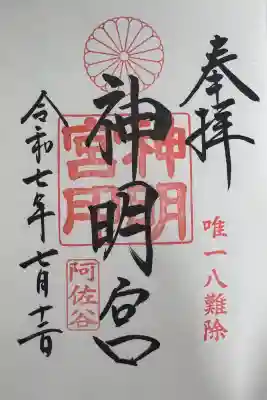 奉拝
唯一八難除
神明宮
神明
宮印
阿佐谷
令和七年七月十二日